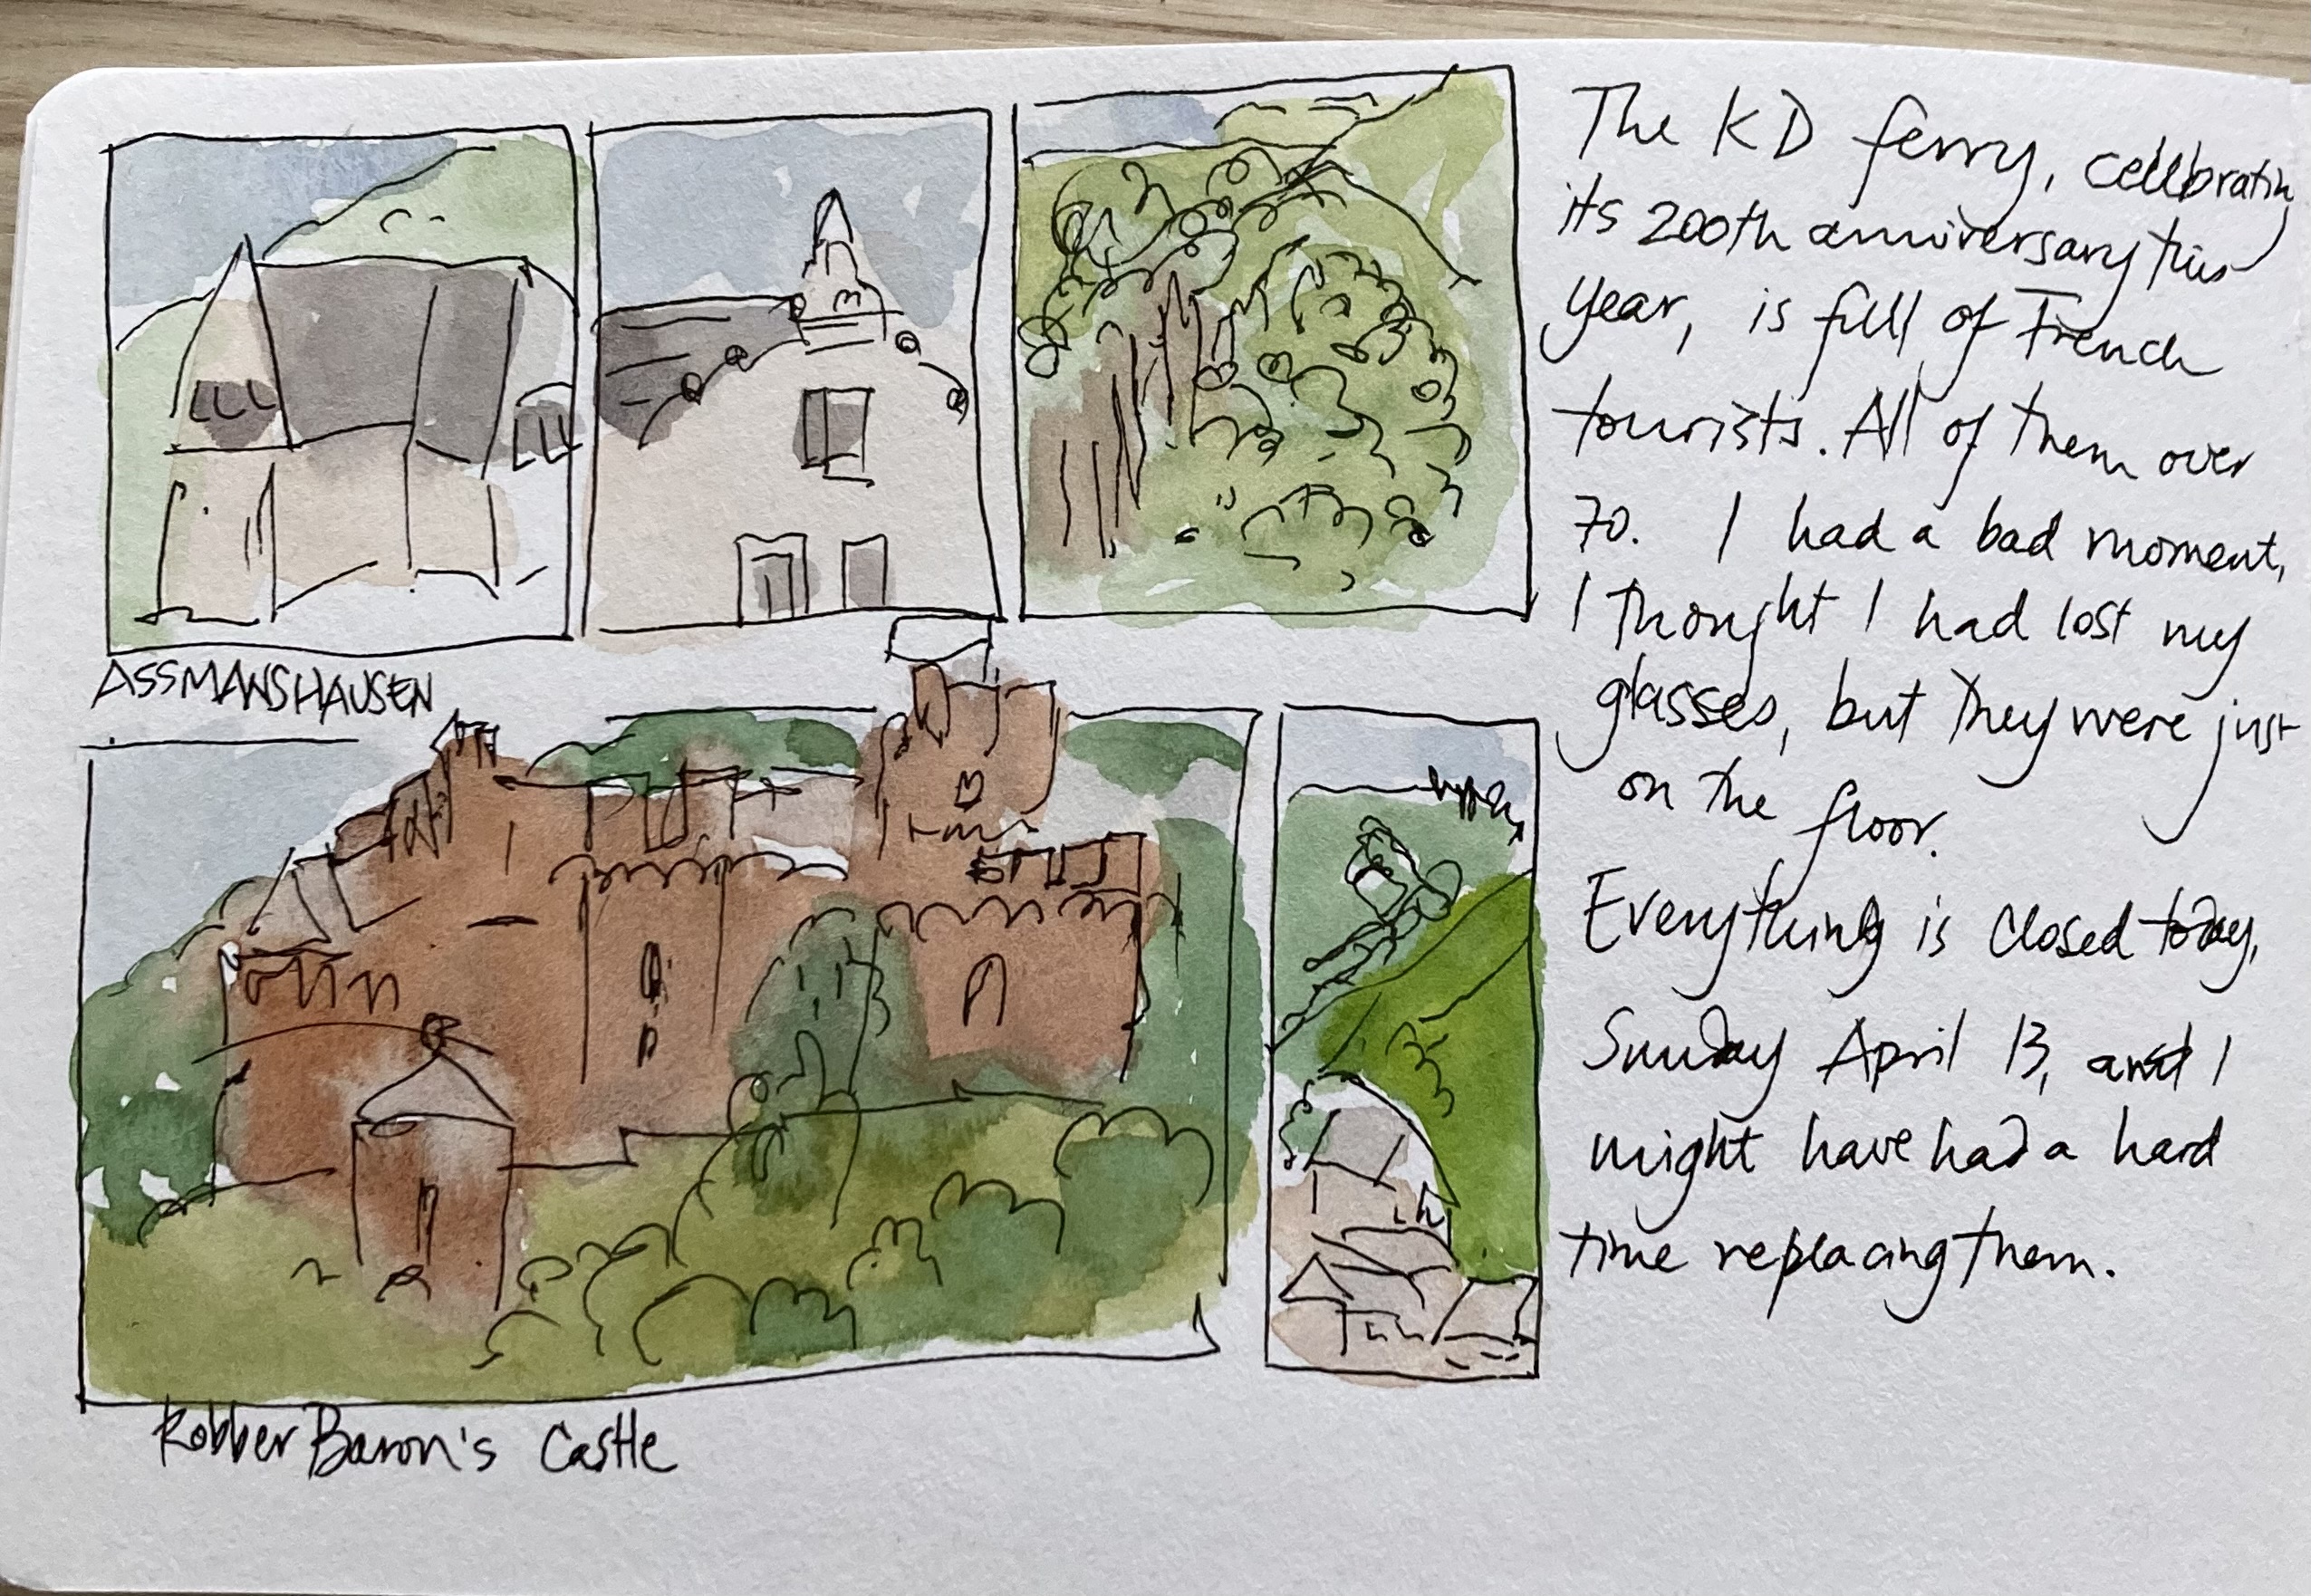 The KD ferry, cellbrating
its 200th anniversary this
year, is full of French
tourists. All of them over
70. I had a bad moment,
I thought I had lost my
glasses, but they were just
on the floor.
Everything is closed today,
Sunday April 13, and I
might have had a hard
time replacing them.
ASSMANSHAUSEN
Robber Baron's Castle